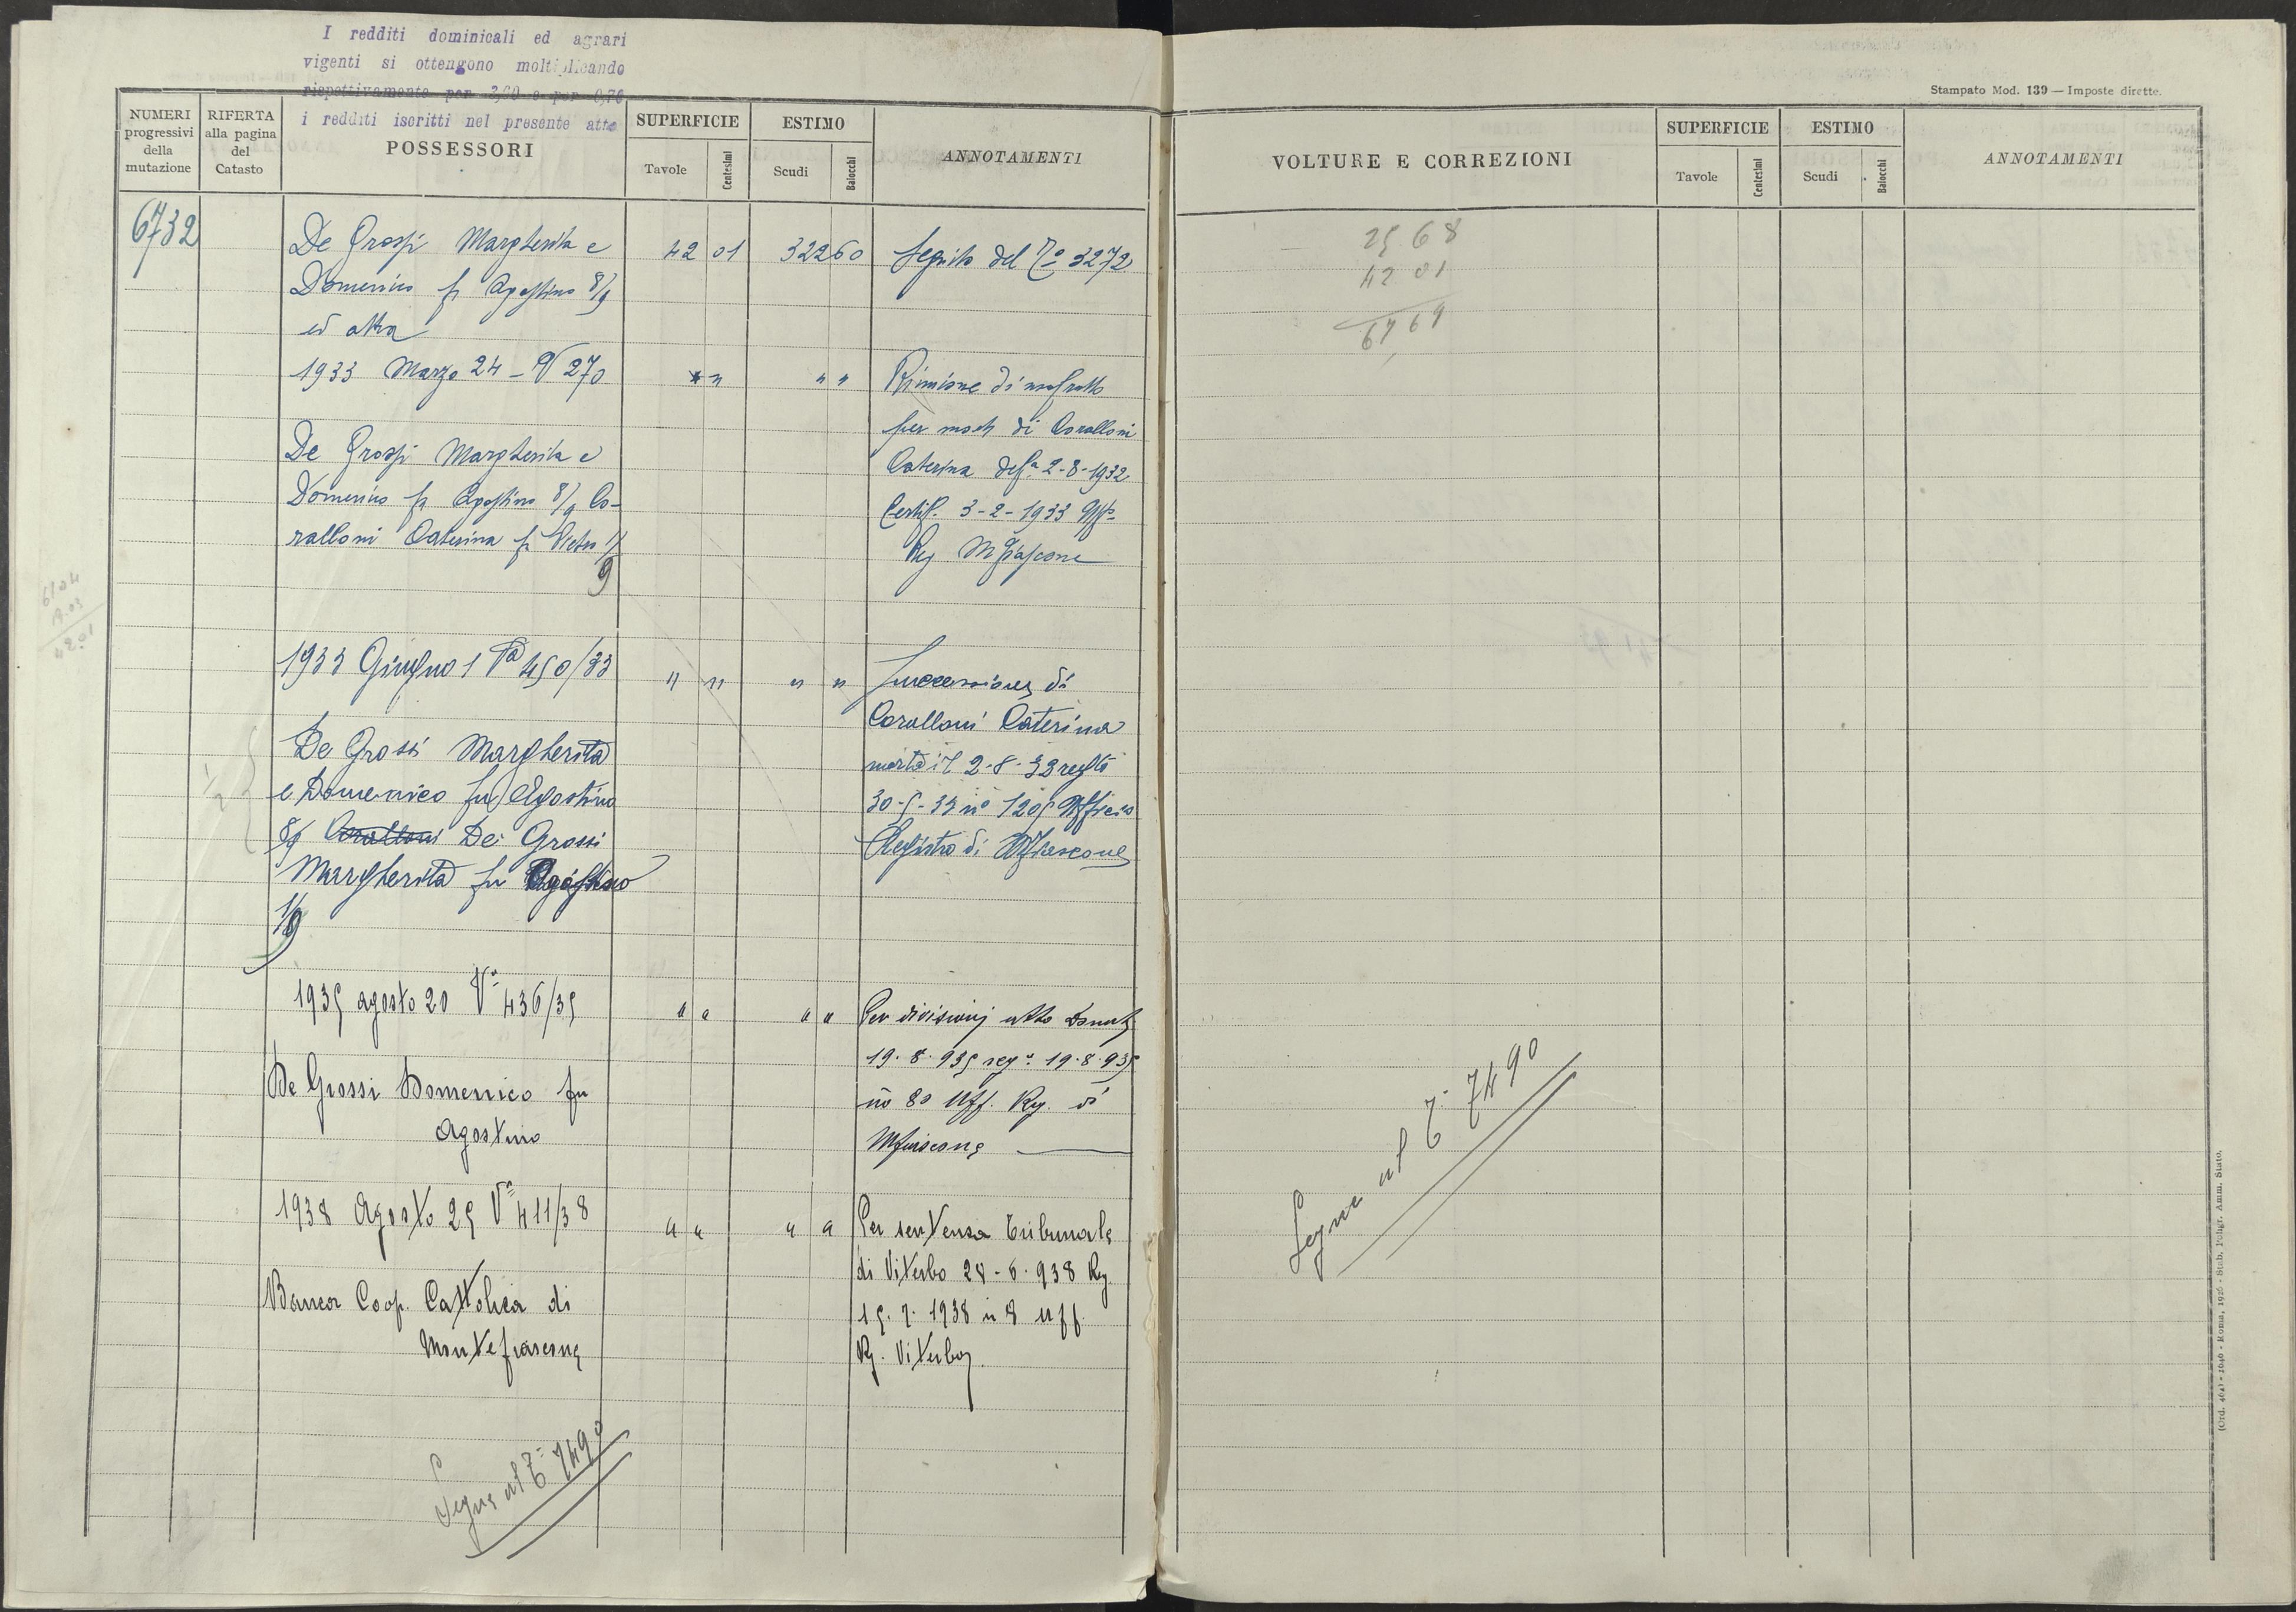 I redditi dominicali ed agrari
vigenti si ottengono moltiplicando
rispettivamente per 3,60 e per 0,76
i redditi iscritti nel presente atto
NUMERI progressivi della mutazione
RIFERTA alla pagina del Catasto
POSSESSORI
SUPERFICIE
Tavole
Centesimi
ESTIMO
Scudi
Baiocchi
ANNOTAMENTI
6732
De Grossi Margherita e 42 01 322 60 Seguito del 3272
Domenico fu Agostino 8/9
ed altra
1933 Marzo 24 - V 270 " " " " Riunione di usufrutto
per morte di Coralloni
De Grossi Margherita e Caterina def.a 2-8-1932
Domenico fu Agostino 8/9 Co- Certif. 3-2-1933 Uff.
ralloni Caterina fu Pietro 1/9 Reg Mfiascone
1933 Giugno 1 Va 450/33 " " " " Successione di
Coralloni Caterina
De Grossi Margherita morta il 2-8-32
e Domenico fu Agostino 30-5-33 no 1205 Ufficio
8/9 Coralloni De Grossi Registro di Mfiascone
Margherita fu Agostino
1/9
1/2
1935 agosto 20 Va 436/35 " " " " Per divisioni atto
19.8.935 reg. 19.8.935
De Grossi Domenico fu no 80 Uff. Reg. di
Agostino Mfiascone
1938 Agosto 25 Va 411/38 " " " " Per sentenza Tribunale
di Viterbo 28-6-938 Reg.
Banca Coop. Cattolica di 15.7.1938 n 8 Uff.
Montefiascone Rg. Viterbo
Segue al 7490
42.01
Stampato Mod. 139 — Imposte dirette.
VOLTURE E CORREZIONI
SUPERFICIE
Tavole
Centesimi
ESTIMO
Scudi
Baiocchi
ANNOTAMENTI
25 68
42 01
67 69
Segue al 7490
(Ord. 404) - 1640 - Roma, 1926 - Stab. Poligr. Amm. Stato.